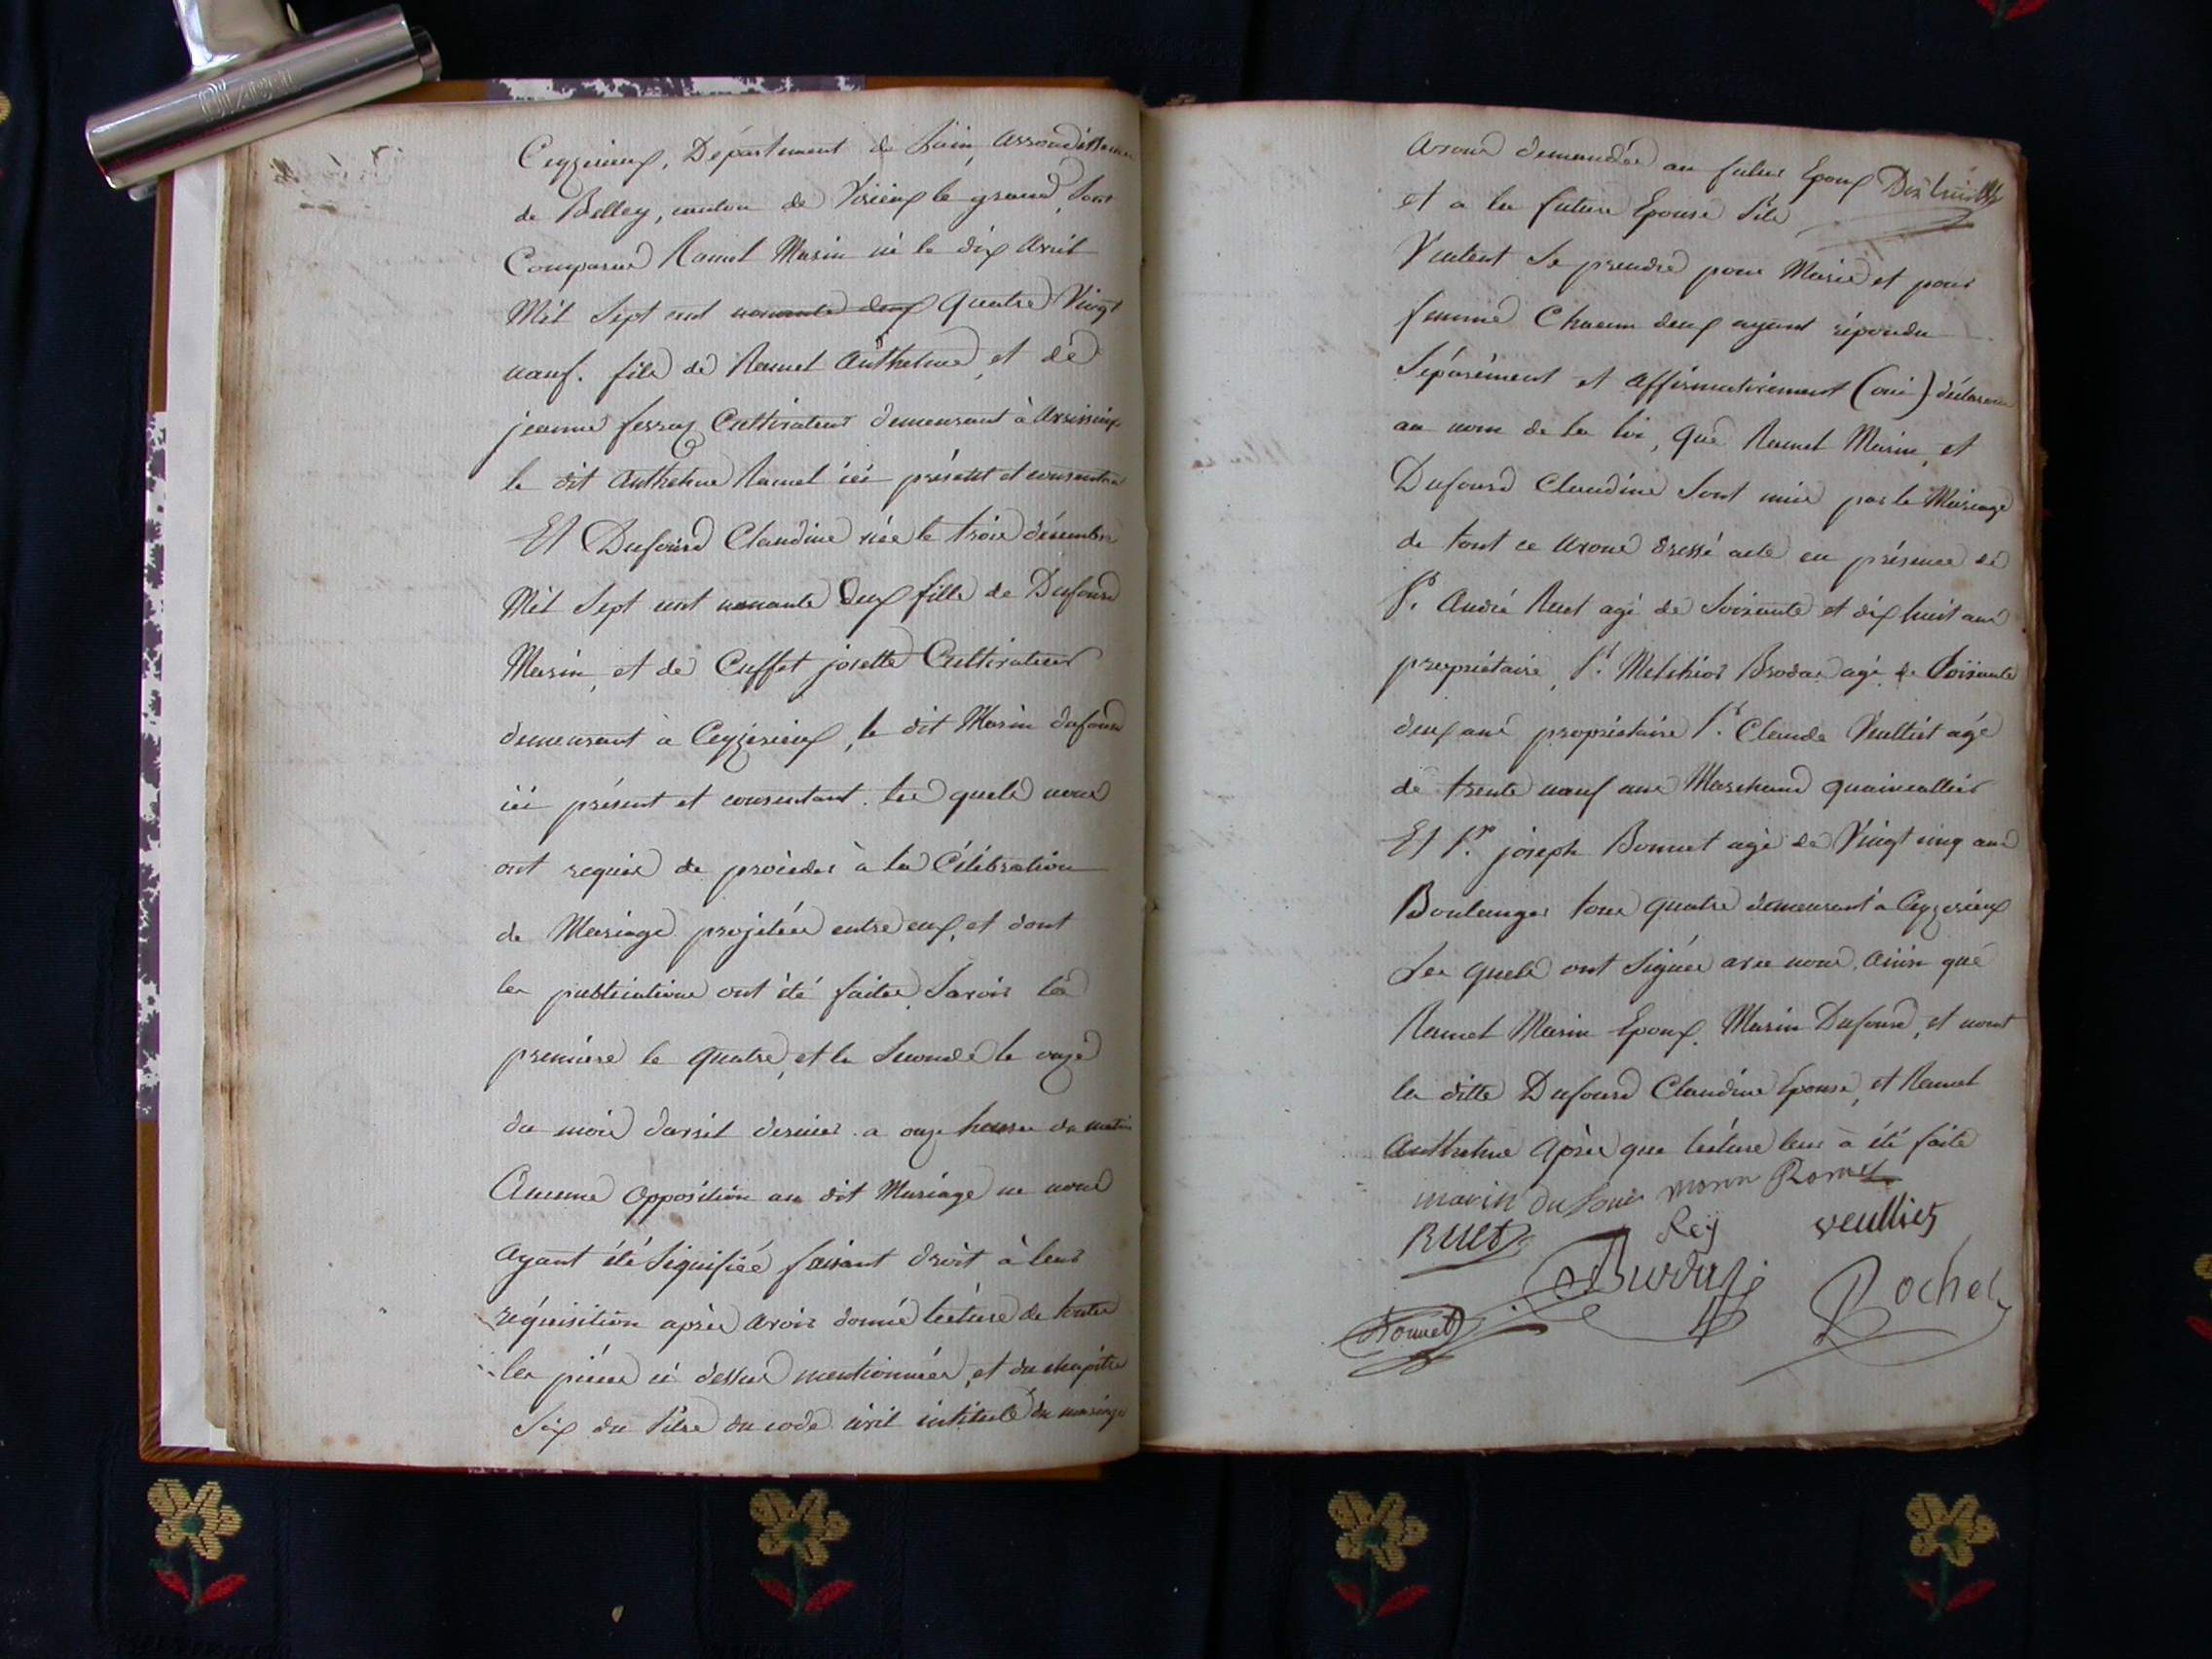 Ceyzerieux, Département de Lain, Arrondissemen
de Belley, canton de Virieux le grand, Sont
Comparus Ramel Marin né le dix Avril
Mil Sept cent nonante deux Quatre Vingt
nauf. fils de Ramel Anthelme, et de
jeanne ferroz Cultivateur demeurant à
le dit Anthelme Ramel ici présent et consentan
Et Dufourd Claudine née le trois décembre
Mil Sept cent nonante Deux fille de Dufourd
Marin, et de Cuffet josette Cultivateur
demeurant a Ceyzerieux, le dit Marin dufourd
ici présent et consentant. les quels nous
ont requis de procéder à la Célébration
de Mariage projetée entre eux, et dont
les publications ont été faites Savoir la
premiere le Quatre, et la Seconde le onze
du mois davril dernier a onze heures du matin
Aucune Opposition au dit Mariage ne nous
ayant été Signifiée faisant droit à leur
réquisition après avoir donné lecture de toutes
les piéces ci dessus mentionnées, et du chapitre
Six du titre du code civil intitulé du mariage
avons demandés au futur Epoux Dix huit
et a la future Epouse Sils
Veulent Se prendre pour Marie et pour
femme Chacun deux ayant répondu
Séparément et Affirmativement (oui) déclarons
au nom de la loi, que Ramel Marin, et
Dufourd Claudine Sont unis par le Mariage
de tout ce avons dressé acte en présence de
Sr. André Ruet agé de Soixante et dix huit ans
propriétaire, Sr. Melchior agé de Soixante
deux ans propriétaire Sr. Claude Veulliet agé
de trente nauf ans Marchand quaincallier
Et Sr. joseph Bonnet agé de Vingt cinq ans
Boulanger tous quatre demeurant a Ceyzerieux
Les quels ont Signés avec nous, ainsi que
Ramel Marin Epoux, Marin Dufourd, et nont
la ditte Dufourd Claudine Epouse, et Ramel
Anthelme Après que lecture leur à été faite
marin dufour marin Ramel
Ruet Rey veulliet
Rochet
Bonnet